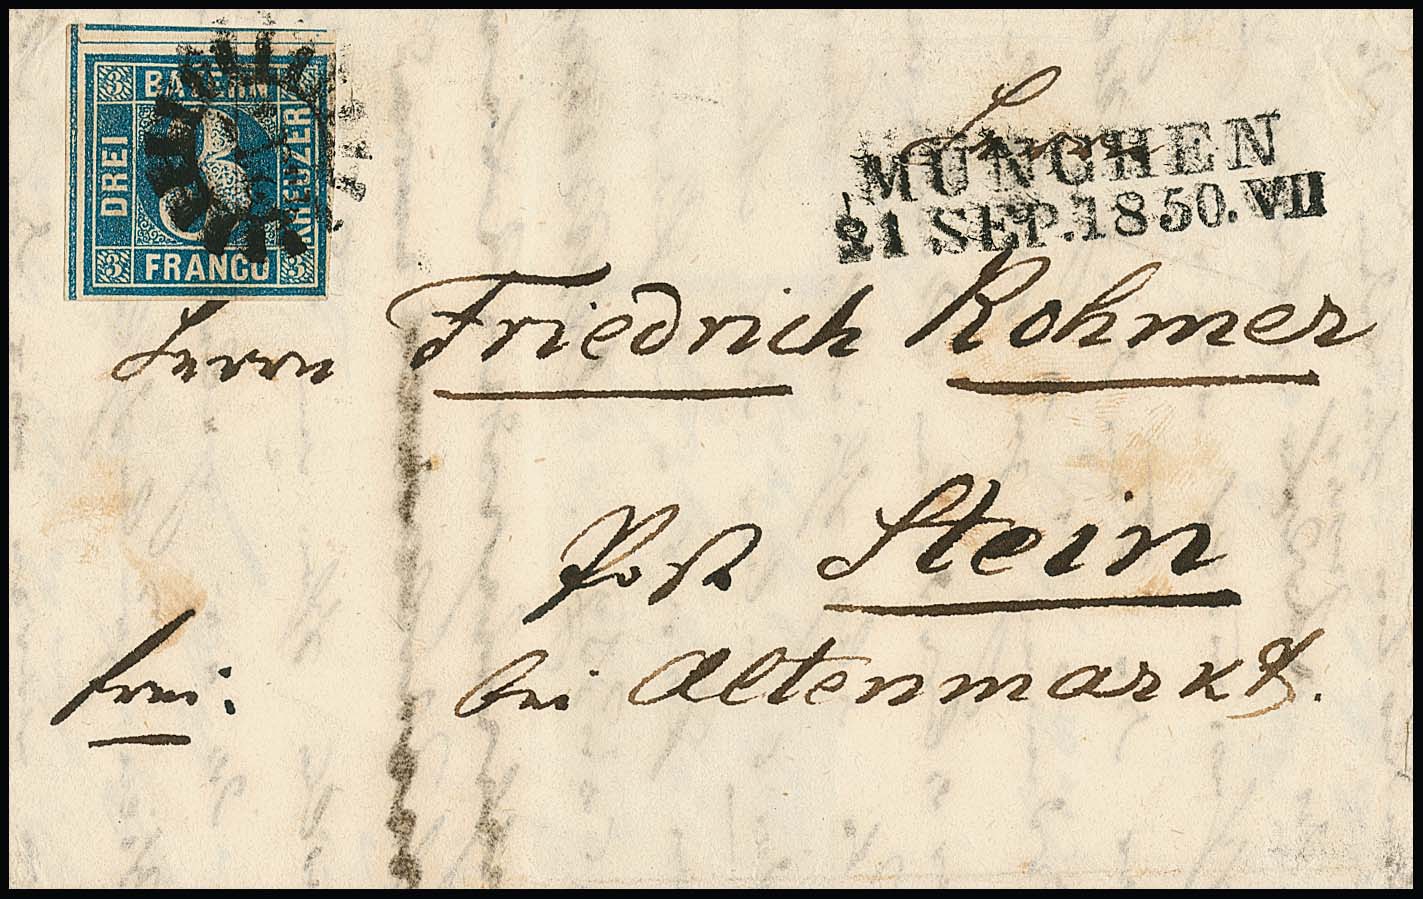 3 BAYERN
DREI
KREUZER
3 FRANCO 3
MÜNCHEN
21 SEP. 1850. VII
Herrn Friedrich Rohmer
Post Stein
frei. bei Altenmarkt.